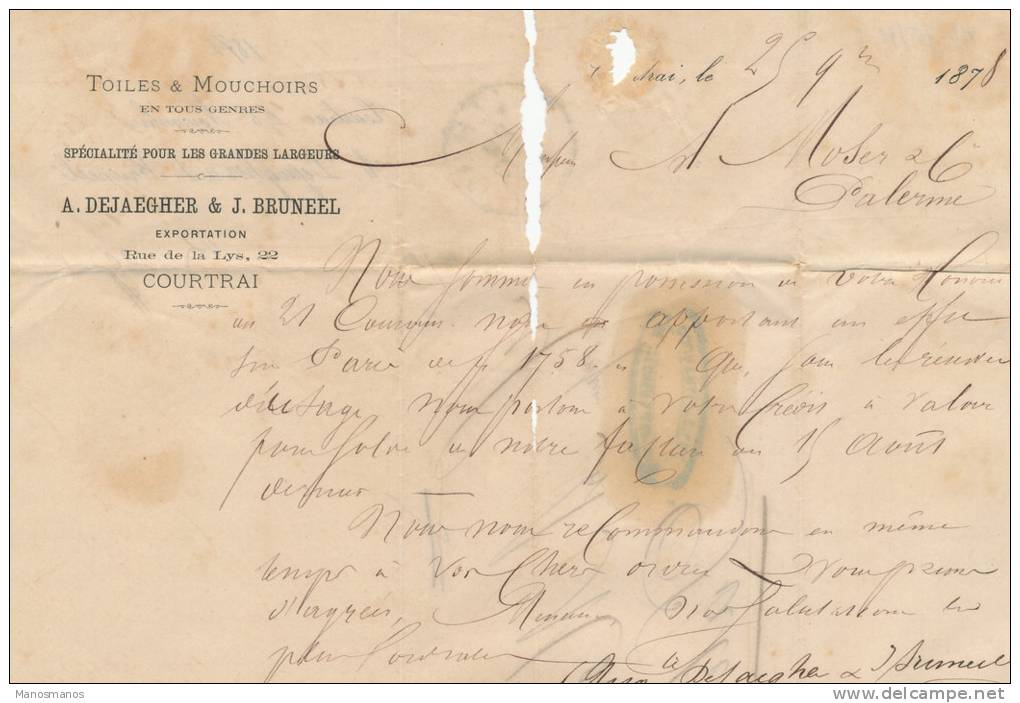 TOILES & MOUCHOIRS
EN TOUS GENRES
SPÉCIALITÉ POUR LES GRANDES LARGEURS
A. DEJAEGHER & J. BRUNEEL
EXPORTATION
Rue de la Lys, 22
COURTRAI
trai, le 25 9bre 1878
Moser & Cie
Palerme
Nous sommes en possession de votre Honorée
du 21 Courant nous apportant un effet
sur Paris de f 1758
d'usage, nous portons à votre Crédit, à valoir
pour Solde de notre facture du 15 Août
dernier
Nous nous recommandons en même
temps à vos Chers ordres & vous prions
d'agréer, Messieurs, nos Salutations les
plus Cordiales
A Dejaegher & J Bruneel
Manosmanos
delcampe.net